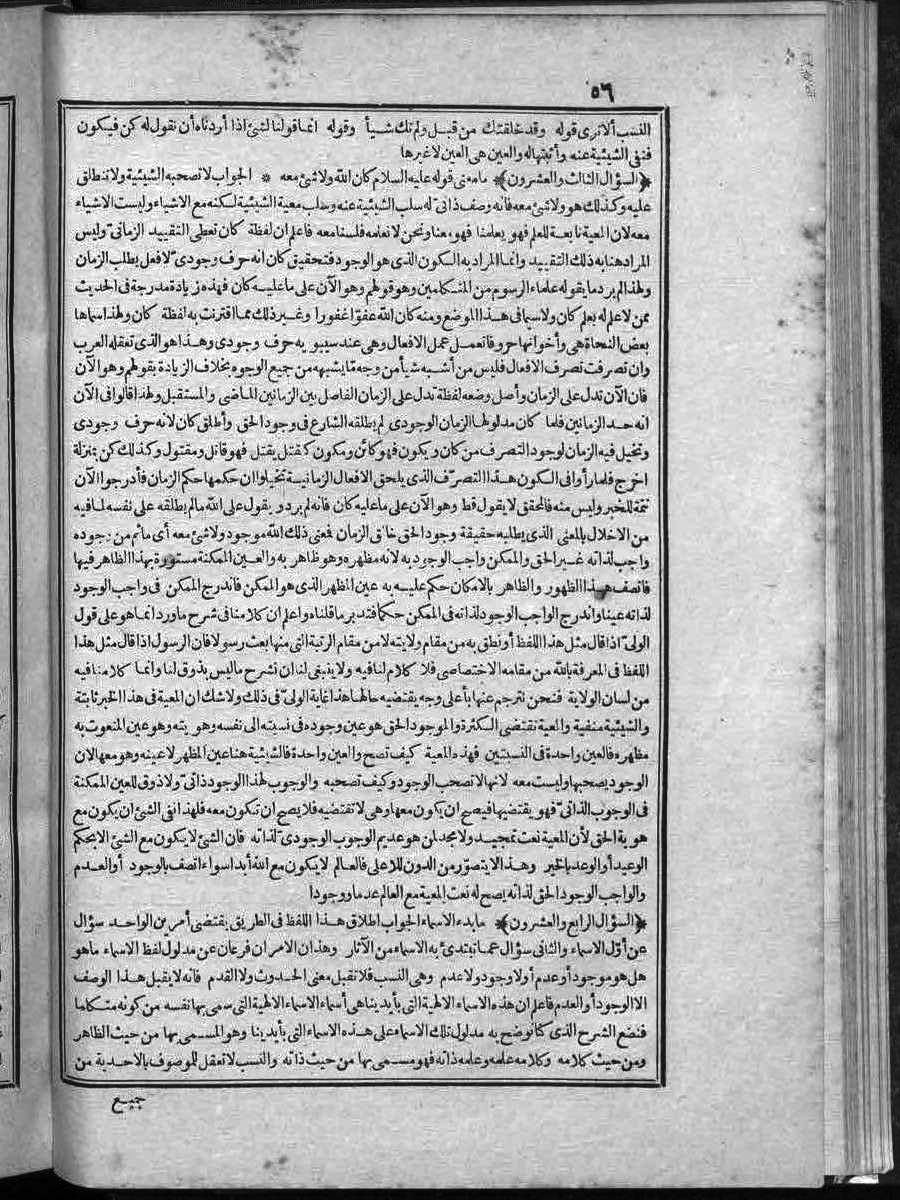 ٥٦
النسب ألا ترى قوله وقد خلقتك من قبل ولم تك شيأ وقوله انما قولنا لشئ اذا أردناه أن نقول له كن فيكون
فنفى الشيئية عنه وأثبتها له والعين هى العين لا غيرها
﴿السؤال الثالث والعشرون﴾ ما معنى قوله عليه السلام كان الله ولا شئ معه * الجواب لا تصحبه الشيئية ولا تنطلق
عليه وكذلك هو ولا شئ معه فانه وصف ذاتى له سلب الشيئية عنه وسلب معية الشيئية لكنه مع الاشياء وليست الاشياء
معه لان المعية تابعة للعلم فهو يعلمنا فهو معنا ونحن لا نعلمه فلسنا معه فاعلم ان لفظة كان تعطى التقييد الزمانى وليس
المراد هنا به ذلك التقييد وانما المراد به الكون الذى هو الوجود فتحقيق كان انه حرف وجودى لا فعل يطلب الزمان
ولهذا لم يرد ما يقوله علماء الرسوم من المتكلمين وهو قولهم وهو الآن على ما عليه كان فهذه زيادة مدرجة فى الحديث
ممن لا علم له بعلم كان ولا سيما فى هذا الموضع ومنه كان الله عفوّا غفورا وغير ذلك مما اقترنت به لفظة كان ولهذا سماها
بعض النحاة هى وأخواتها حروفا تعمل عمل الافعال وهى عند سيبويه حرف وجودى وهذا هو الذى تعقله العرب
وان تصرفت تصرف الافعال فليس من أشبه شيأ من وجه ما يشبهه من جميع الوجوه بخلاف الزيادة بقولهم وهو الآن
فان الآن تدل على الزمان وأصل وضعه لفظة تدل على الزمان الفاصل بين الزمانين الماضى والمستقبل ولهذا قالوا فى الآن
انه حد الزمانين فلما كان مدلولها الزمان الوجودى لم يطلقه الشارع فى وجود الحق وأطلق كان لانه حرف وجودى
وتخيل فيه الزمان لوجود التصرف من كان ويكون فهو كائن ومكون كقتل يقتل فهو قاتل ومقتول وكذلك كن بمنزلة
اخرج فلما رأوا فى الكون هذا التصرّف الذى يلحق الافعال الزمانية تخيلوا ان حكمها حكم الزمان فأدرجوا الآن
تتمة للخبر وليس منه فالمحقق لا يقول قط وهو الآن على ما عليه كان فانه لم يرد ويقول على الله ما لم يطلقه على نفسه لما فيه
من الاخلال بالمعنى الذى يطلبه حقيقة وجود الحق خالق الزمان فمعنى ذلك الله موجود ولا شئ معه أى ما ثم من وجوده
واجب لذاته غير الحق والممكن واجب الوجود به لانه مظهره وهو ظاهر به والعين الممكنة مستورة بهذا الظاهر فيها
فاتصف هذا الظهور والظاهر بالامكان حكم عليه به عين المظهر الذى هو الممكن فاندرج الممكن فى واجب الوجود
لذاته عينا واندرج الواجب الوجود لذاته فى الممكن حكما فتدبر ما قلناه واعلم ان كلامنا فى شرح ما ورد انما هو على قول
الولىّ اذا قال مثل هذا اللفظ أو نطق به من مقام ولايته لا من مقام الرتبة التى منها بعث رسولا فان الرسول اذا قال مثل هذا
اللفظ فى المعرفة بالله من مقامه الاختصاصى فلا كلام لنا فيه ولا ينبغى لنا ان نشرح ما ليس بذوق لنا وانما كلامنا فيه
من لسان الولاية فنحن نترجم عنها بأعلى وجه يقتضيه حالها هذا غاية الولىّ فى ذلك ولا شك ان المعية فى هذا الخبر ثابتة
والشيئية منفية والمعية تقتضى الكثرة والموجود الحق هو عين وجوده فى نسبته الى نفسه وهويته وهو عين المنعوت به
مظهره فالعين واحدة فى النسبتين فهذه المعية كيف تصح والعين واحدة فالشيئية هنا عين المظهر لا عينه وهو معها لان
الوجود يصحبها وليست معه لانها لا تصحب الوجود وكيف تصحبه والوجوب لهذا الوجود ذاتىّ ولا ذوق للعين الممكنة
فى الوجوب الذاتىّ فهو يقتضيها فيصح ان يكون معها وهى لا تقتضيه فلا يصح ان تكون معه فلهذا نفى الشئ ان يكون مع
هوية الحق لأن المعية نعت تمجيد ولا مجد لمن هو عديم الوجوب الوجودى لذاته فان الشئ لا يكون مع الشئ الا بحكم
الوعيد أو الوعد بالخير وهذا لا يتصوّر من الدون للاعلى فالعالم لا يكون مع الله أبدا سواء اتصف بالوجود أو العدم
والواجب الوجود الحق لذاته يصح له نعت المعية مع العالم عدما ووجودا
﴿السؤال الرابع والعشرون﴾ ما بدء الاسماء الجواب اطلاق هذا اللفظ فى الطريق يقتضى أمرين الواحد سؤال
عن أوّل الاسماء والثانى سؤال عما تبتدئ به الاسماء من الآثار وهذان الامران فرعان عن مدلول لفظ الاسماء ما هو
هل هو موجود أو عدم أو لا وجود ولا عدم وهى النسب فلا تقبل معنى الحدوث ولا القدم فانه لا يقبل هذا الوصف
الا الوجود أو العدم فاعلم ان هذه الاسماء الالهية التى بأيدينا هى أسماء الاسماء الالهية التى سمى بها نفسه من كونه متكلما
فنضع الشرح الذى كنا نوضح به مدلول تلك الاسماء على هذه الاسماء التى بأيدينا وهو المسمى بها من حيث الظاهر
ومن حيث كلامه وكلامه علمه وعلمه ذاته فهو مسمى بها من حيث ذاته والنسب لا تعقل للموصوف بالاحدية من
جميع